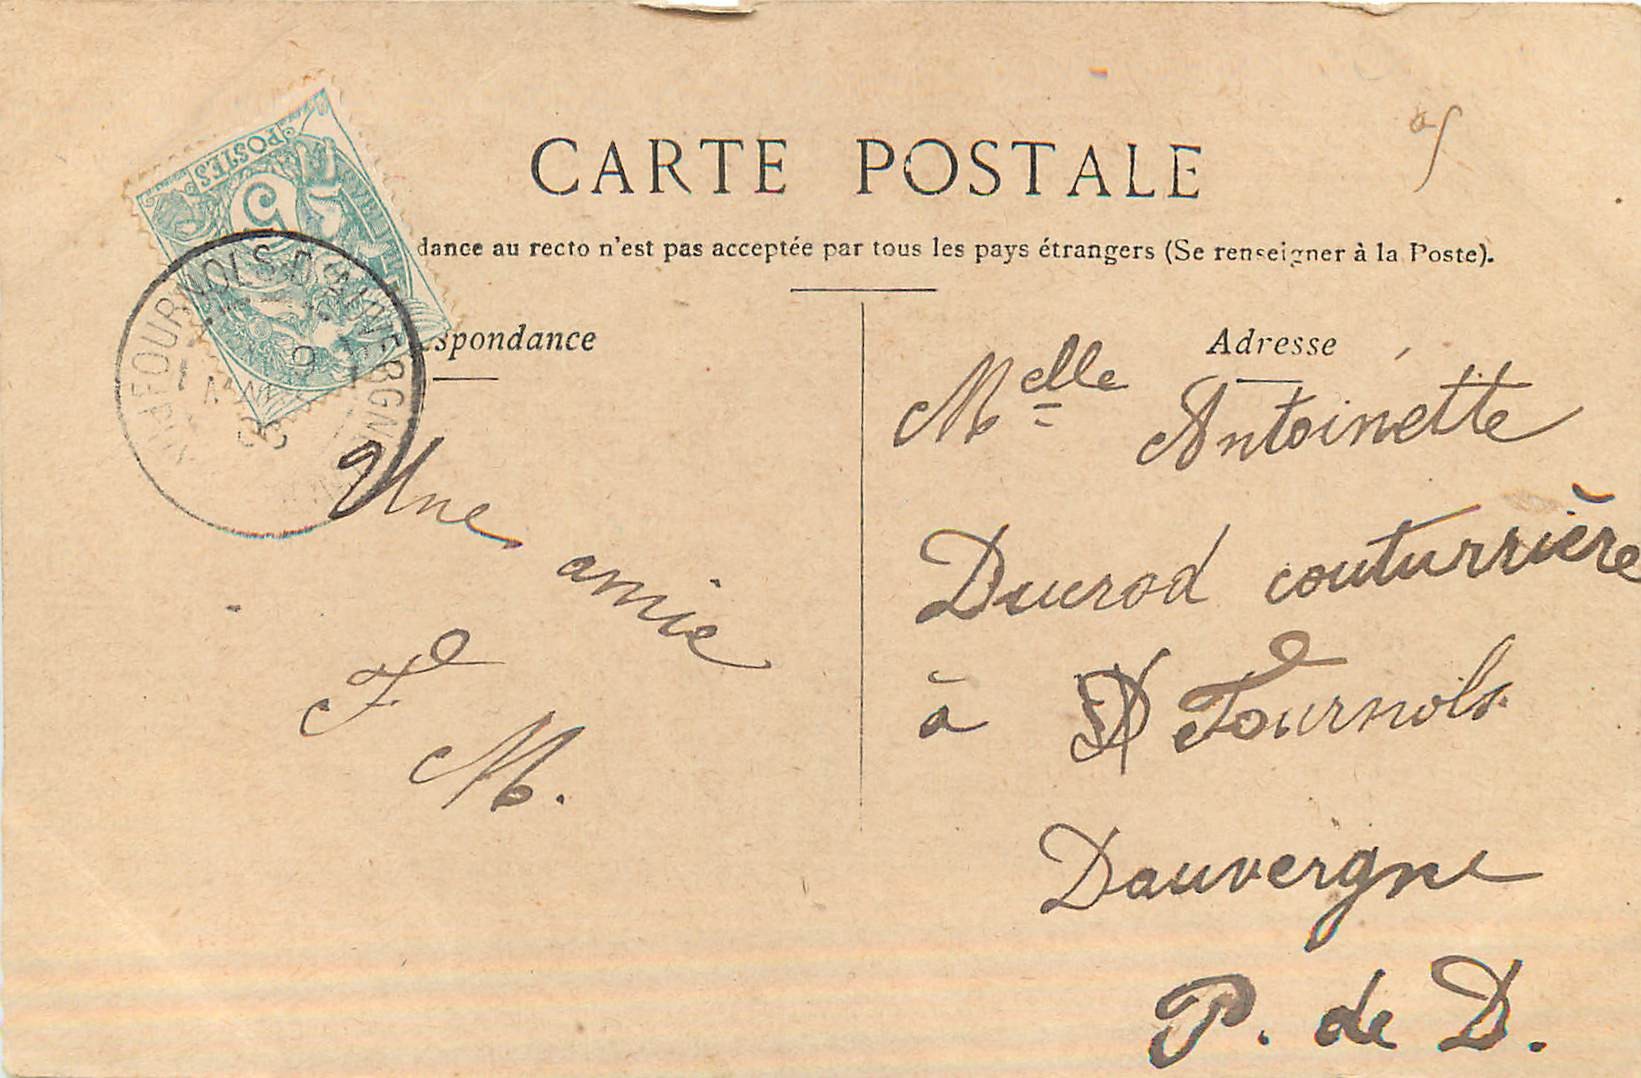 CARTE POSTALE
dance au recto n'est pas acceptée par tous les pays étrangers (Se renseigner à la Poste).
spondance
Adresse
POSTES
5
FOURNOLS-D'AUVERGNE
9
Une amie
F
M.
Melle Antoinette
Ducrod couturrière
à Fournols
Dauvergne
P. de D.